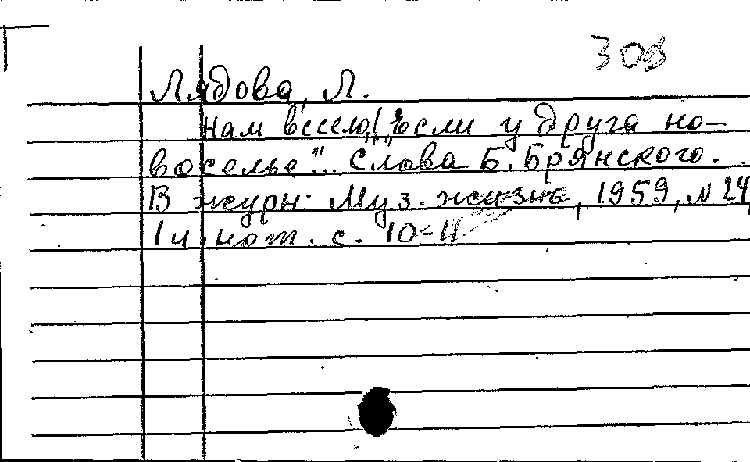 308
Лядова, Л.
Нам весело! "Если у друга но-
воселье"... Слова Б. Брянского.
В журн. Муз. жизнь, 1959, N 24,
1 н. нот. с. 10-11